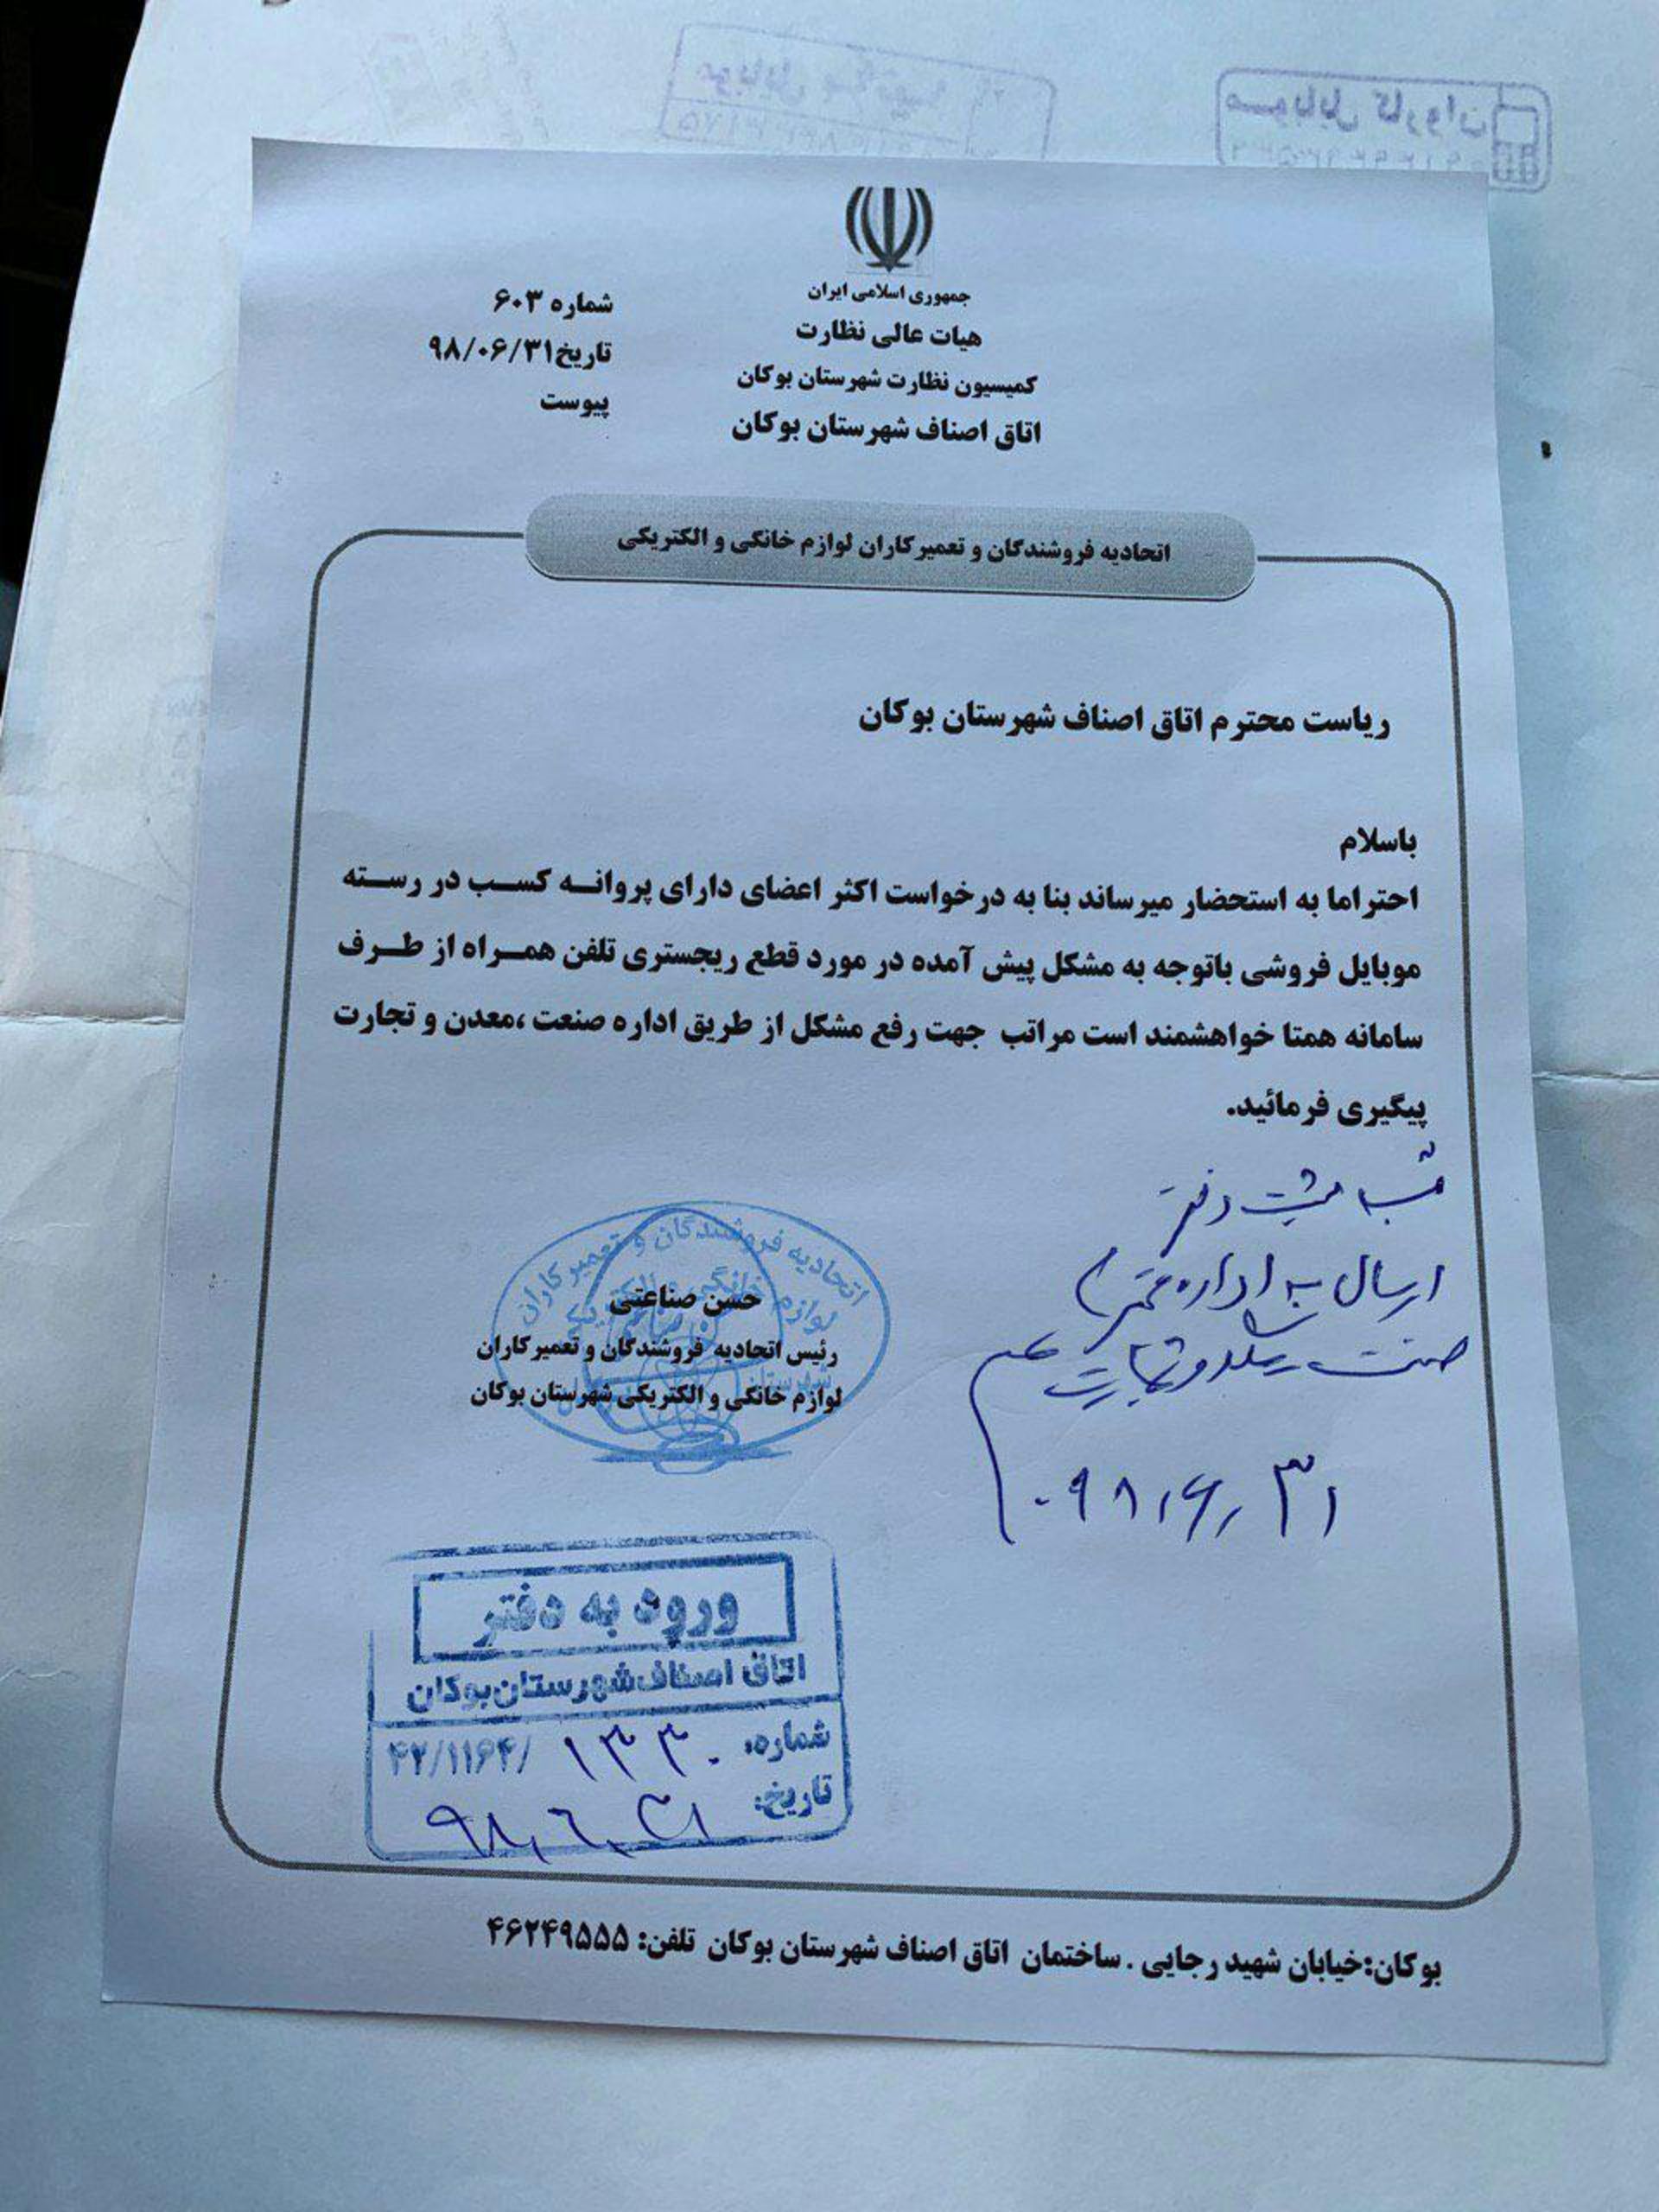 جمهوری اسلامی ایران
هیات عالی نظارت
کمیسیون نظارت شهرستان بوکان
اتاق اصناف شهرستان بوکان
شماره ۶۰۳
تاریخ۹۸/۰۶/۳۱
پیوست
اتحادیه فروشندگان و تعمیرکاران لوازم خانگی و الکتریکی
ریاست محترم اتاق اصناف شهرستان بوکان
باسلام
احتراما به استحضار میرساند بنا به درخواست اکثر اعضای دارای پروانه کسب در رسته
موبایل فروشی باتوجه به مشکل پیش آمده در مورد قطع ریجستری تلفن همراه از طرف
سامانه همتا خواهشمند است مراتب جهت رفع مشکل از طریق اداره صنعت ،معدن و تجارت
پیگیری فرمائید.
دفتر
ارسال به اداره محترم
صنعت معدن و تجارت
۹۸/۶/۳۱
اتحادیه فروشندگان و تعمیرکاران
لوازم خانگی و الکتریکی
حسن صناعتی
رئیس اتحادیه فروشندگان و تعمیرکاران
لوازم خانگی و الکتریکی شهرستان بوکان
ورود به دفتر
اتاق اصناف شهرستان بوکان
شماره: ۱۳۳۰ /۴۲/۱۱۶۴
تاریخ: ۹۸/۶/۳۱
بوکان:خیابان شهید رجایی . ساختمان اتاق اصناف شهرستان بوکان تلفن: ۴۶۲۴۹۵۵۵